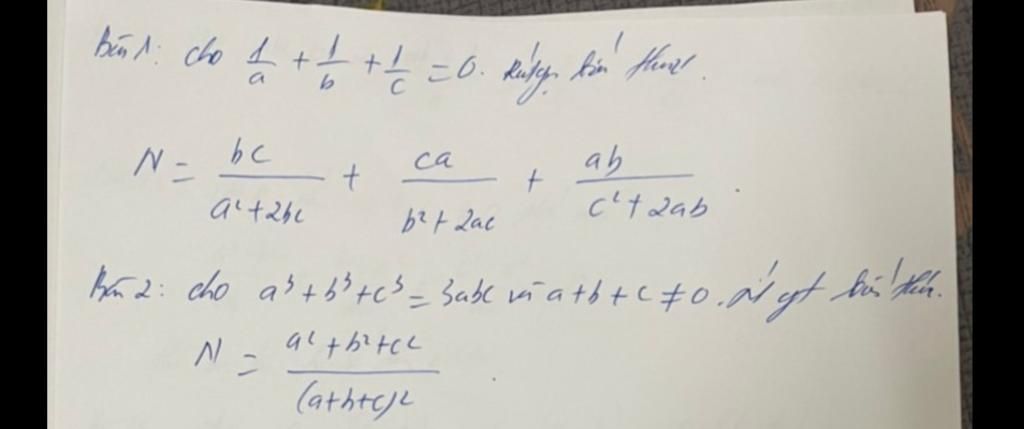 Bài 1: cho 1/a + 1/b + 1/c = 0. Rút gọn biểu thức.
N = bc/(a² + 2bc) + ca/(b² + 2ac) + ab/(c² + 2ab).
Bài 2: cho a³ + b³ + c³ = 3abc và a + b + c ≠ 0. biểu thức.
N = (a² + b² + c²)/(a+b+c)².